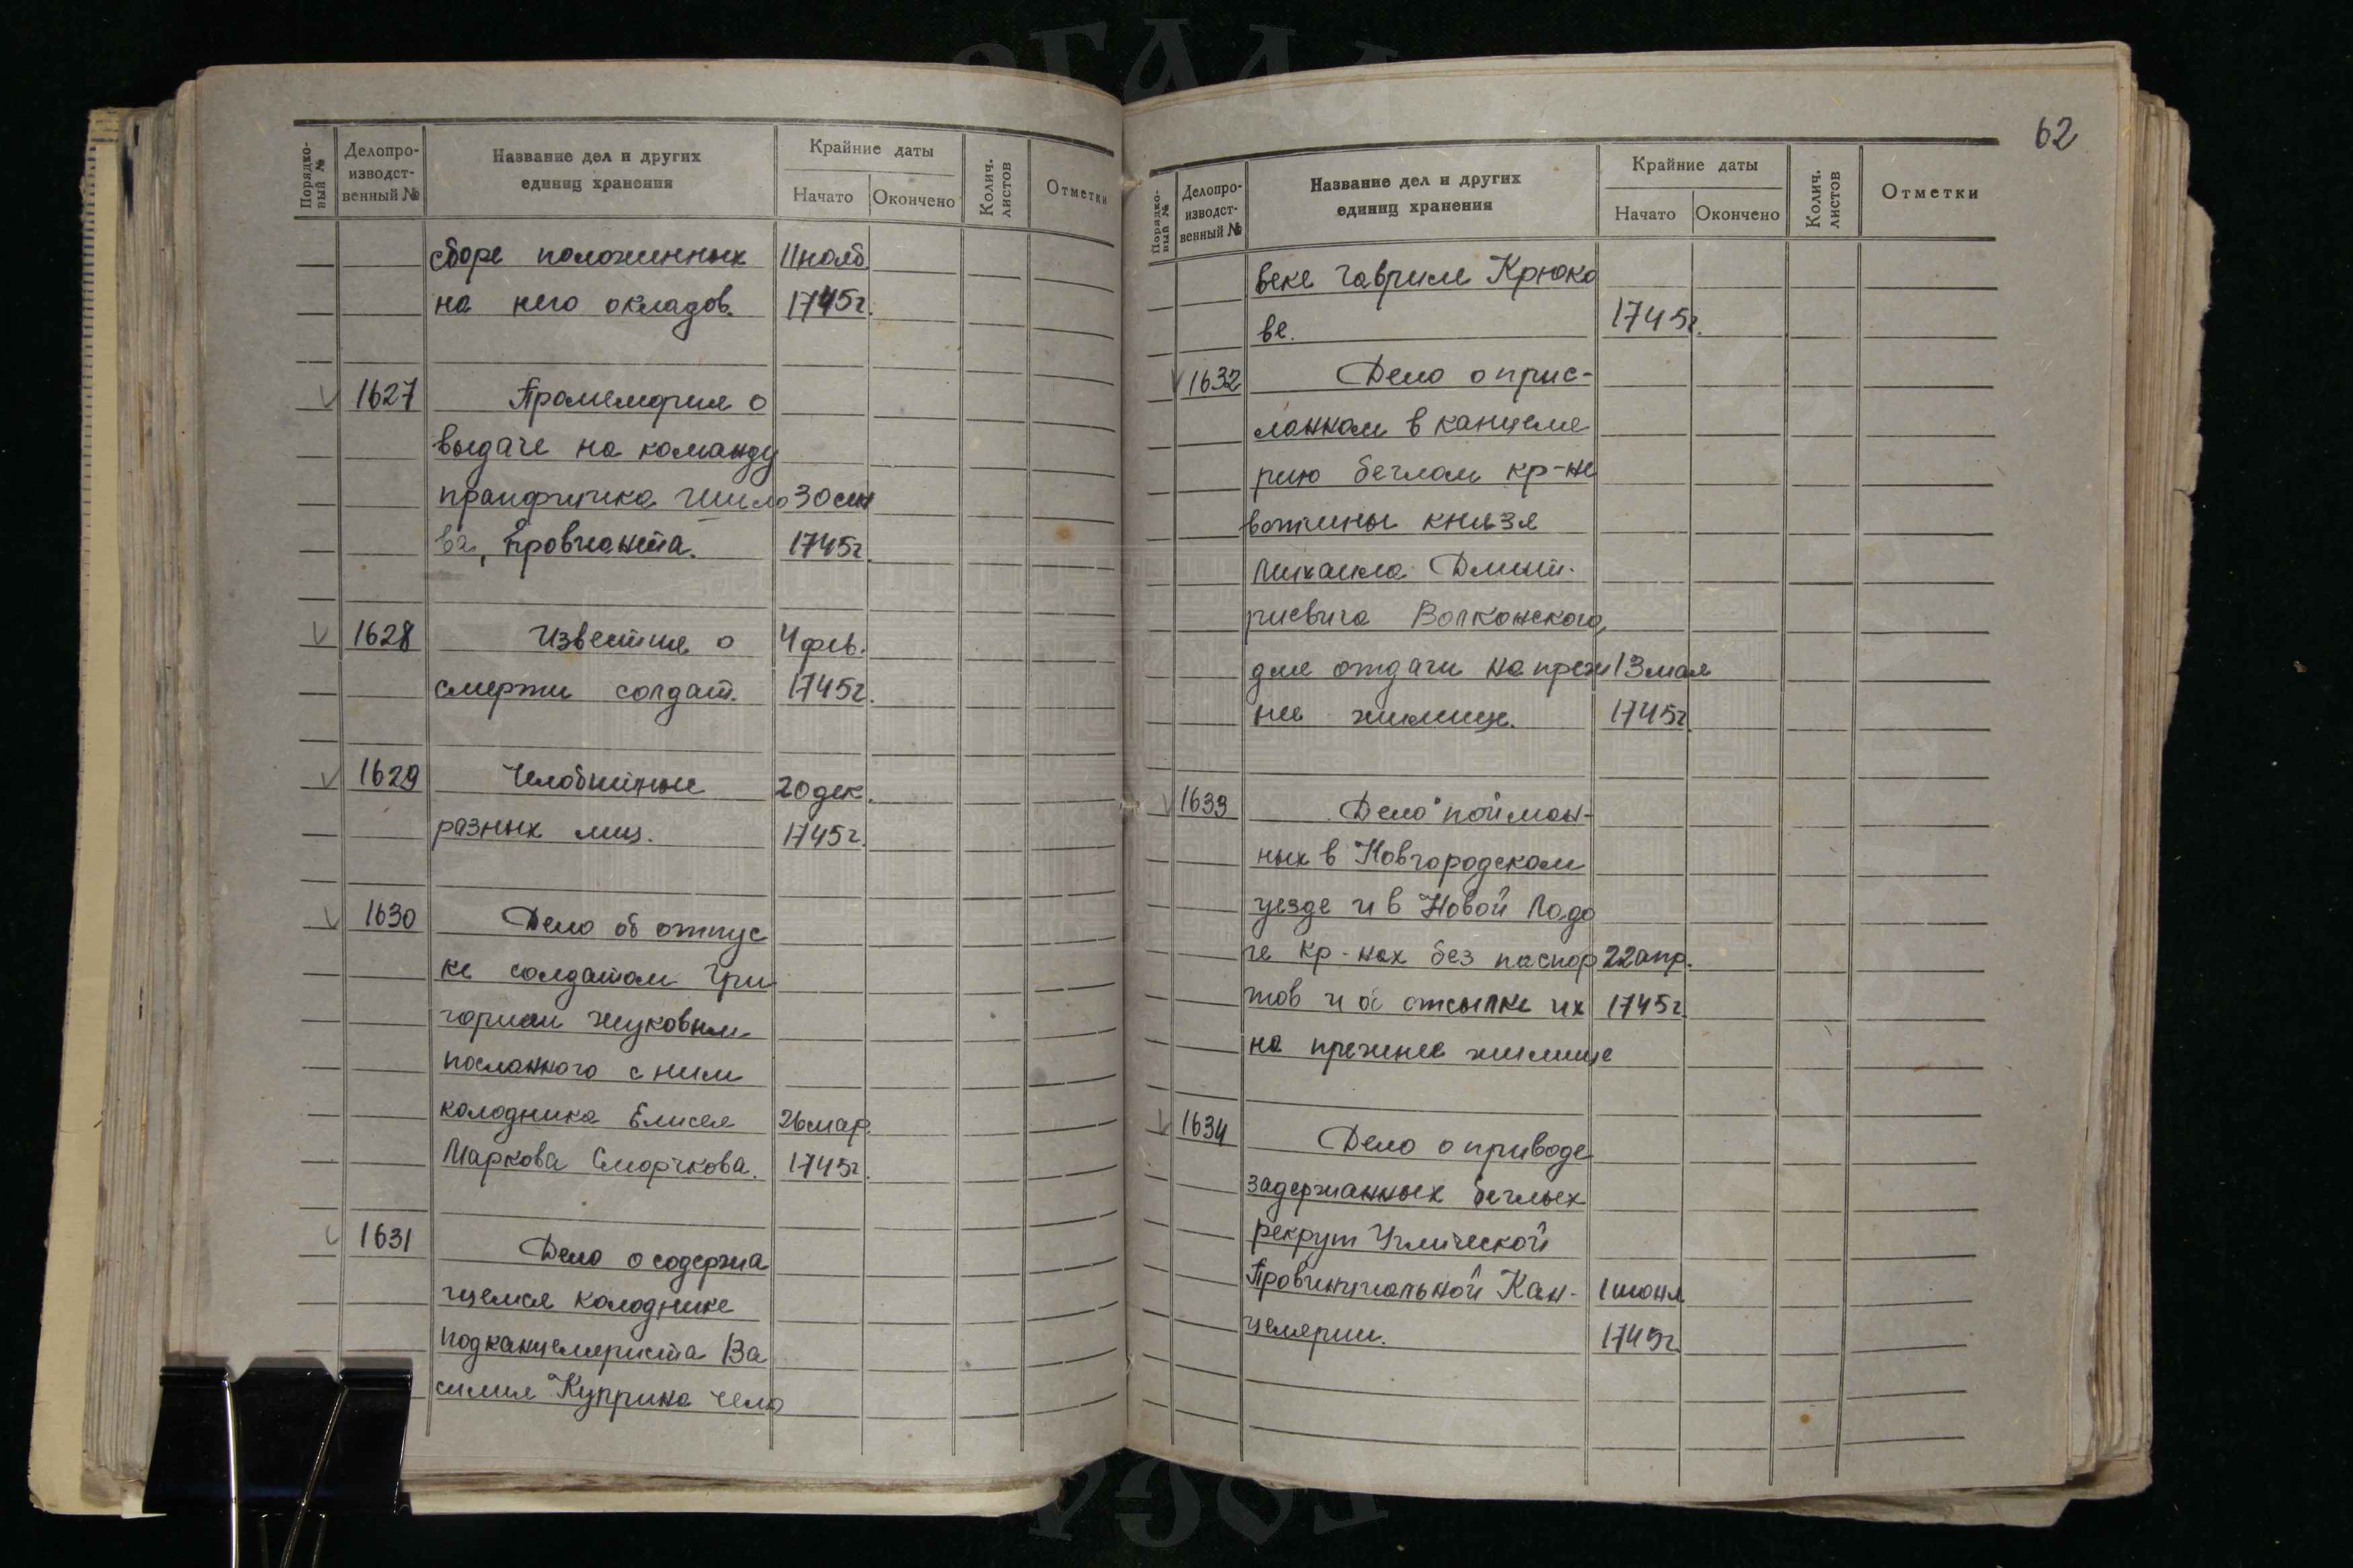 Порядко-
вый №
Делопро-
изводст-
венный №
Название дел и других
единиц хранения
Крайние даты
Начато
Окончено
Колич.
листов
Отметки
сборе положенных 11 нояб
на него окладов. 1745г.
1627 Промемория о
выдаче на команду
прапорщика 30 сен
ва, провианта. 1745г.
1628 Известие о 4 фев.
смерти солдат. 1745г.
1629 Челобитные 20 дек.
разных лиц. 1745г.
1630 Дело об отпус
ке солдатом Гри
горием Жуковым
посланного с ним
колодника Елисея 26 мар.
Маркова Сморчкова. 1745г.
1631 Дело о содержа
щемся колоднике
подканцеляриста Ва
силия Куприна чело
62
Порядко-
вый №
Делопро-
изводст-
венный №
Название дел и других
единиц хранения
Крайние даты
Начато
Окончено
Колич.
листов
Отметки
веке Гавриле Крюко
ве. 1745г.
1632 Дело о прис-
ланном в канцеля
рию беглом кр-не
вотчины князя
Михаила Дмит-
риевича Волконского,
для отдачи на преж 13 мая
нее жилище. 1745г
1633 Дело о пойман-
ных в Новгородском
уезде и в Новой Ладо
ге кр-нах без паспор 22 апр.
тов и об отсылке их 1745г.
на прежнее жилище
1634 Дело о приводе
задержанных беглых
рекрут Углической
Провинциальной Кан- 1 июня
целярии. 1745г.